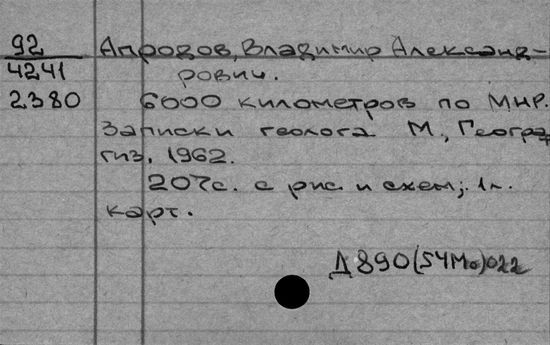 92 Апродов, Владимир Александ-
4241 рович.
2380 6000 километров по МНР.
Записки геолога М., Геогра
гиз, 1962.
207с. с рис. и схем; 1 л.
карт.
Д890(54Мо)022